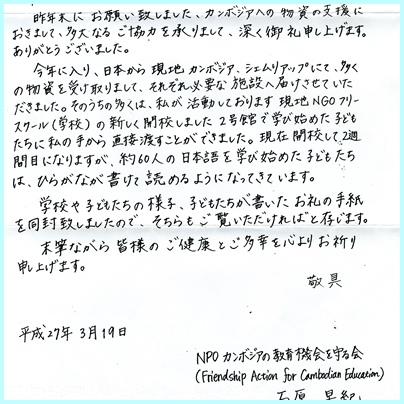 昨年末に お願い致しました、カンボジアへの 物資の支援に
おきまして、多大なる ご協力を承りまして、深く御礼申し上げます。
ありがとうございました。
今年に入り、日本から 現地 カンボジア、シェムリアップにて、多く
の物資を受け取りまして、それぞれ必要な施設へ届けさせていた
だきました。そのうちの多くは、私が活動しております 現地NGOフリー
スクール(学校)の新しく開校しました 2号館で学び始めた子ども
たちに私の手から 直接渡すことができました。現在開校して2週
間目になりますが、約60人の日本語を学び始めた子どもたち
は、ひらがなが書けて読めるようになってきています。
学校や子どもたちの様子、子どもたちが書いたお礼の手紙
を同封致しましたので、そちらもご覧いただければと存じます。
末筆ながら 皆様の ご健康とご多幸を心よりお祈り
申し上げます。
敬具
平成27年 3月19日
NPO カンボジアの教育機会を守る会
(Friendship Action for Cambodian Education)
石原